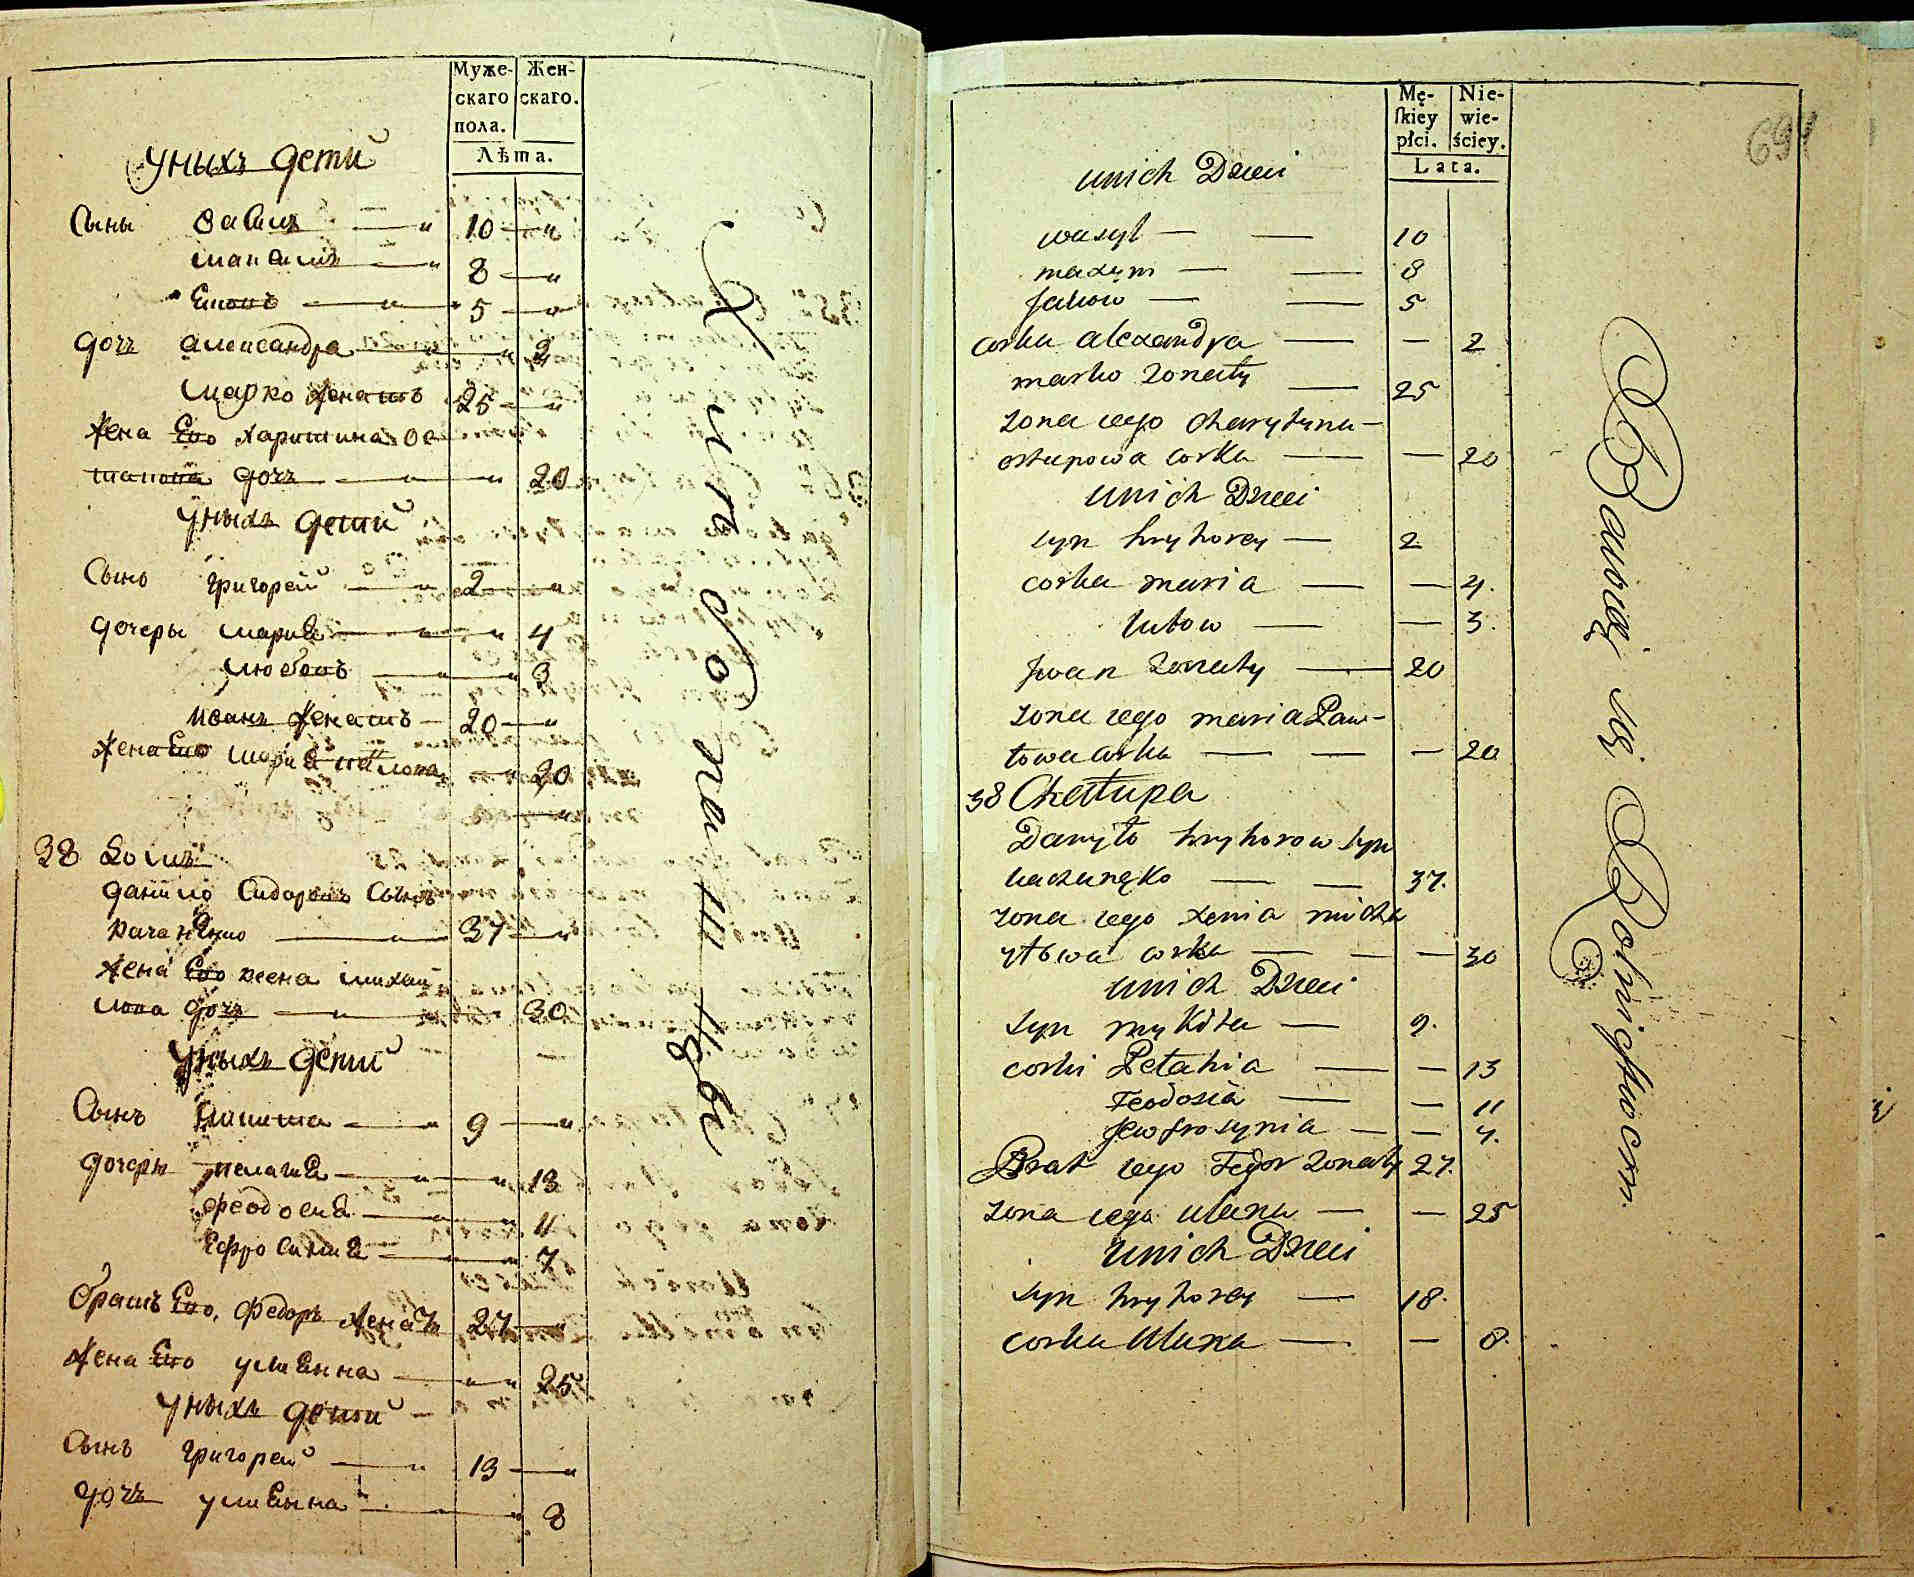 Муже-
скаго
пола.
Жен-
скаго.
Лѣта.
Уныхъ дети
Сыны Василъ 10
Максимъ 8
5
дочъ александра 2
Марко женатъ 25
жена Его харитина ос
тапова дочъ 20
Уныхъ дети
Сынъ григорей 2
дочеры мария 4
любовъ 3
иванъ женатъ 20
жена Его мария павлова 20
38 Домъ
данило Сидоровъ Сынъ
37
жена Его ксена михай
лова дочъ 30
Уныхъ дети
Сынъ Никита 9
дочеры пелагия 13
феодосия 11
Ефросиния 7
братъ Его, федоръ женатъ 27
жена Его улиянна 25
Уныхъ дети
Сынъ григорей 13
дочъ улиянна 8
Хлебопашцве
Mę-
skiey
płci.
Nie-
wie-
ściey.
Lata.
694
unich Dzieci
wasyl 10
maxym 8
Jakow 5
corka alexandra 2
marko zonaty 25
zona iego charytyna
ostapowa corka 20
unich Dzieci
syn hryhorey 2
corka maria 4.
lubow 3.
Jwan zonaty 20
zona iego maria Paw-
łowa corka 20
38 Chałupa
Danyło hryhorow syn
37.
zona iego xenia micha
yłowa corka 30
unich Dzieci
syn mykita 9.
corki Pelahia 13
Feodosia 11
Jewfrosynia 7.
Brat iego Fedor zonaty 27.
zona iego ulana 25
unich Dzieci
syn hryhorey 18.
corka Ulana 8.
Bawią się Rolnictwem.